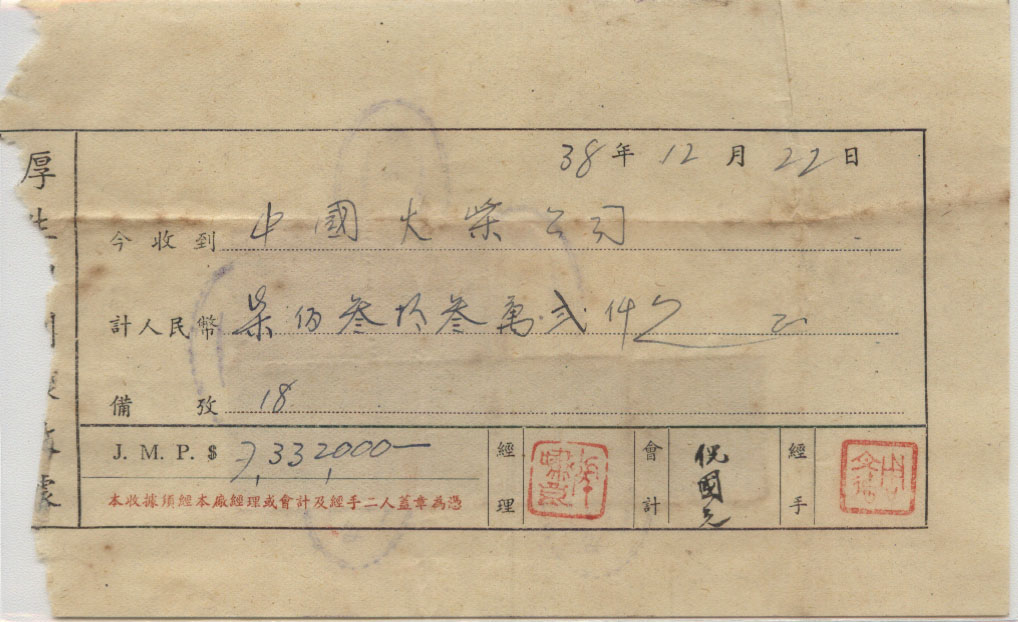 38年12月22日
今收到 中國火柴公司
計人民幣 柒佰叁拾叁萬弍仟
備攷 18
J. M. P. $ 7,332,000—
本收據須經本廠經理或會計及經手二人蓋章為憑
經理
會計 倪國元
經手
厚